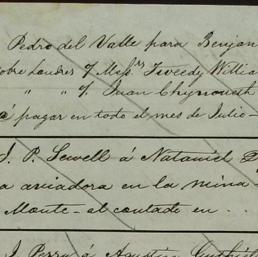 Pedro del Valle para Benjan
obre Londres % Messrs Tweedy Willia
" " %. Juan Chynoweth
á pagar en todo el mes de Julio-
J. P. Sewell á Nataniel
a aviadora en la mina
Monte - al contado en . .
J. Perru á Agustin